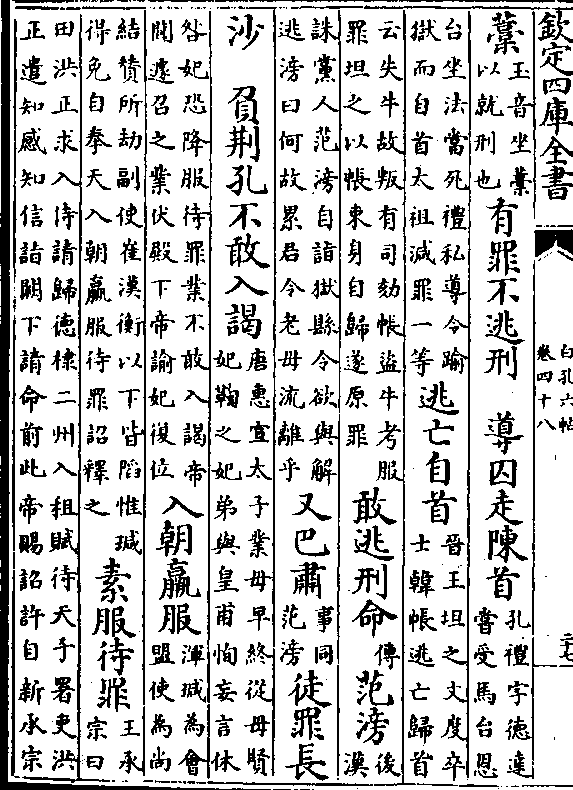 欽定四庫全書
白孔六帖
卷四十八
藁玉音坐藁以就刑也有罪不逃刑 導囚走陳首孔禮字德達嘗受馬台恩
台坐法當死禮私導令踰獄而自首太祖減罪一等逃亡自首晉王坦之文度卒士韓帳逃亡歸首
云失牛故叛有司劾帳盜牛考服罪坦之以帳束身自歸遂原罪敢逃刑命傳范滂後漢
誅黨人范滂自詣獄縣令欲與解逃滂曰何故累君令老母流離乎又巴肅事同范滂徒罪長
沙 負荆孔不敢入謁唐惠宣太子業母早終從母賢妃鞠之妃弟與皇甫恂妄言休
咎妃恐降服待罪業不敢入謁帝聞遽召之業伏殿下帝諭妃復位入朝羸服渾瑊為會盟使為尚
結贊所劫副使崔漢衡以下皆陷惟瑊得免自奉天入朝羸服待罪詔釋之素服待罪王承宗曰
田洪正求入侍請歸德棣二州入租賦待天子署吏洪正遣知感知信詣闕下請命前此帝賜詔許自新承宗